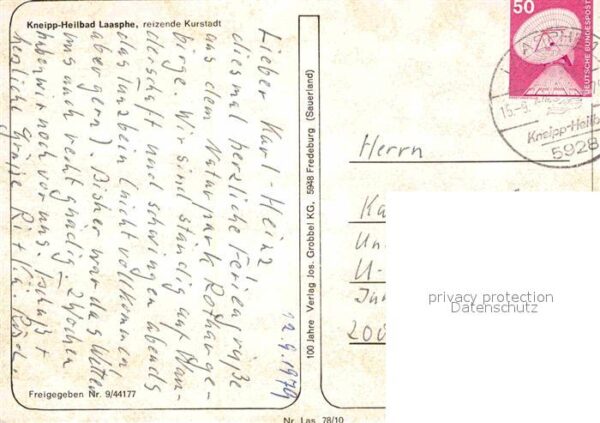 Kneipp-Heilbad Laasphe, reizende Kurstadt
Lieber Karl-Heinz!
diesmal herzliche Feriengrüße
aus dem Naturpark Rothaarge-
birge. Wir sind ständig auf Wan-
derschaft und schwingen abends
das Tanzbein (nicht vollkommen
aber gern). Bisher war das Wetter
uns auch recht gnädig. 2 Wochen
haben wir noch vor uns.
herzliche Grüße
12.9.1979
Freigegeben Nr. 9/44177
100 Jahre Verlag Jos. Grobbel KG, 5948 Fredeburg (Sauerland)
Nr. Las 78/10
50
DEUTSCHE BUNDESPOST
15.-9.
Kneipp-Heilb
5928
Herrn
Ka
Un
U-
200
privacy protection
Datenschutz